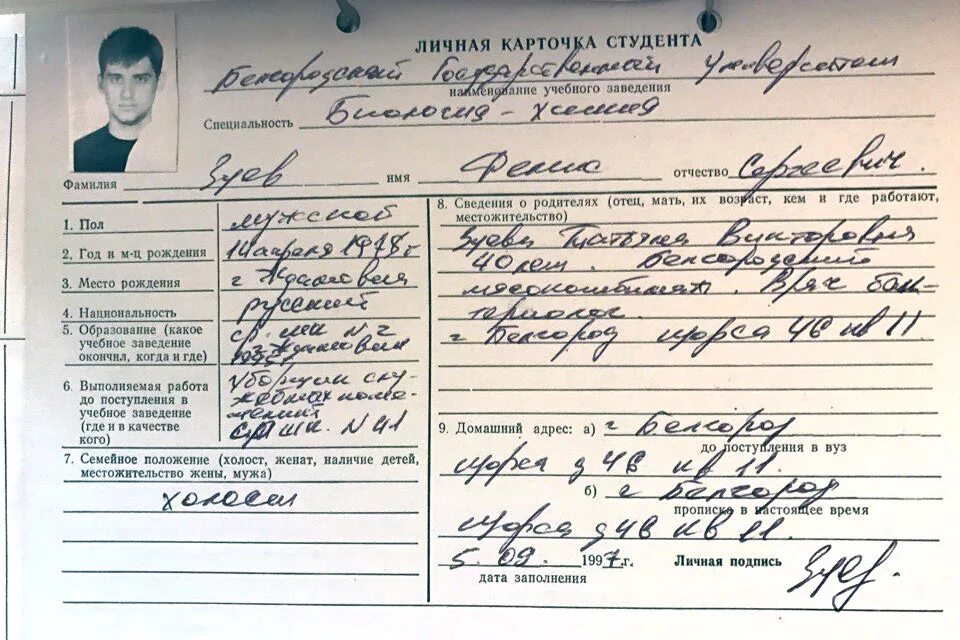 ЛИЧНАЯ КАРТОЧКА СТУДЕНТА
Белгородский Государственный Университет
наименование учебного заведения
Специальность Биология - химия
Фамилия Зуев имя Феликс отчество Сергеевич.
1. Пол мужской
2. Год и м-ц рождения 14 апреля 1978 г
3. Место рождения г
4. Национальность русский
5. Образование (какое
учебное заведение
окончил, когда и где)
ср. шк N 2
6. Выполняемая работа
до поступления в
учебное заведение
(где и в качестве
кого)
Уборщик слу-
жебных поме-
щений
ср. шк. N 41
7. Семейное положение (холост, женат, наличие детей,
местожительство жены, мужа)
холост
8. Сведения о родителях (отец, мать, их возраст, кем и где работают,
местожительство)
Зуева Татьяна Викторовна
40 лет. Белгородский
мясокомбинат. Врач бак-
териолог.
г Белгород Щорса 46 кв 11
9. Домашний адрес: а) г Белгород
до поступления в вуз
Щорса д 46 кв 11.
б) г Белгород
прописка в настоящее время
Щорса д 46 кв 11
5. 09. 1997 г.
дата заполнения
Личная подпись Зуев.